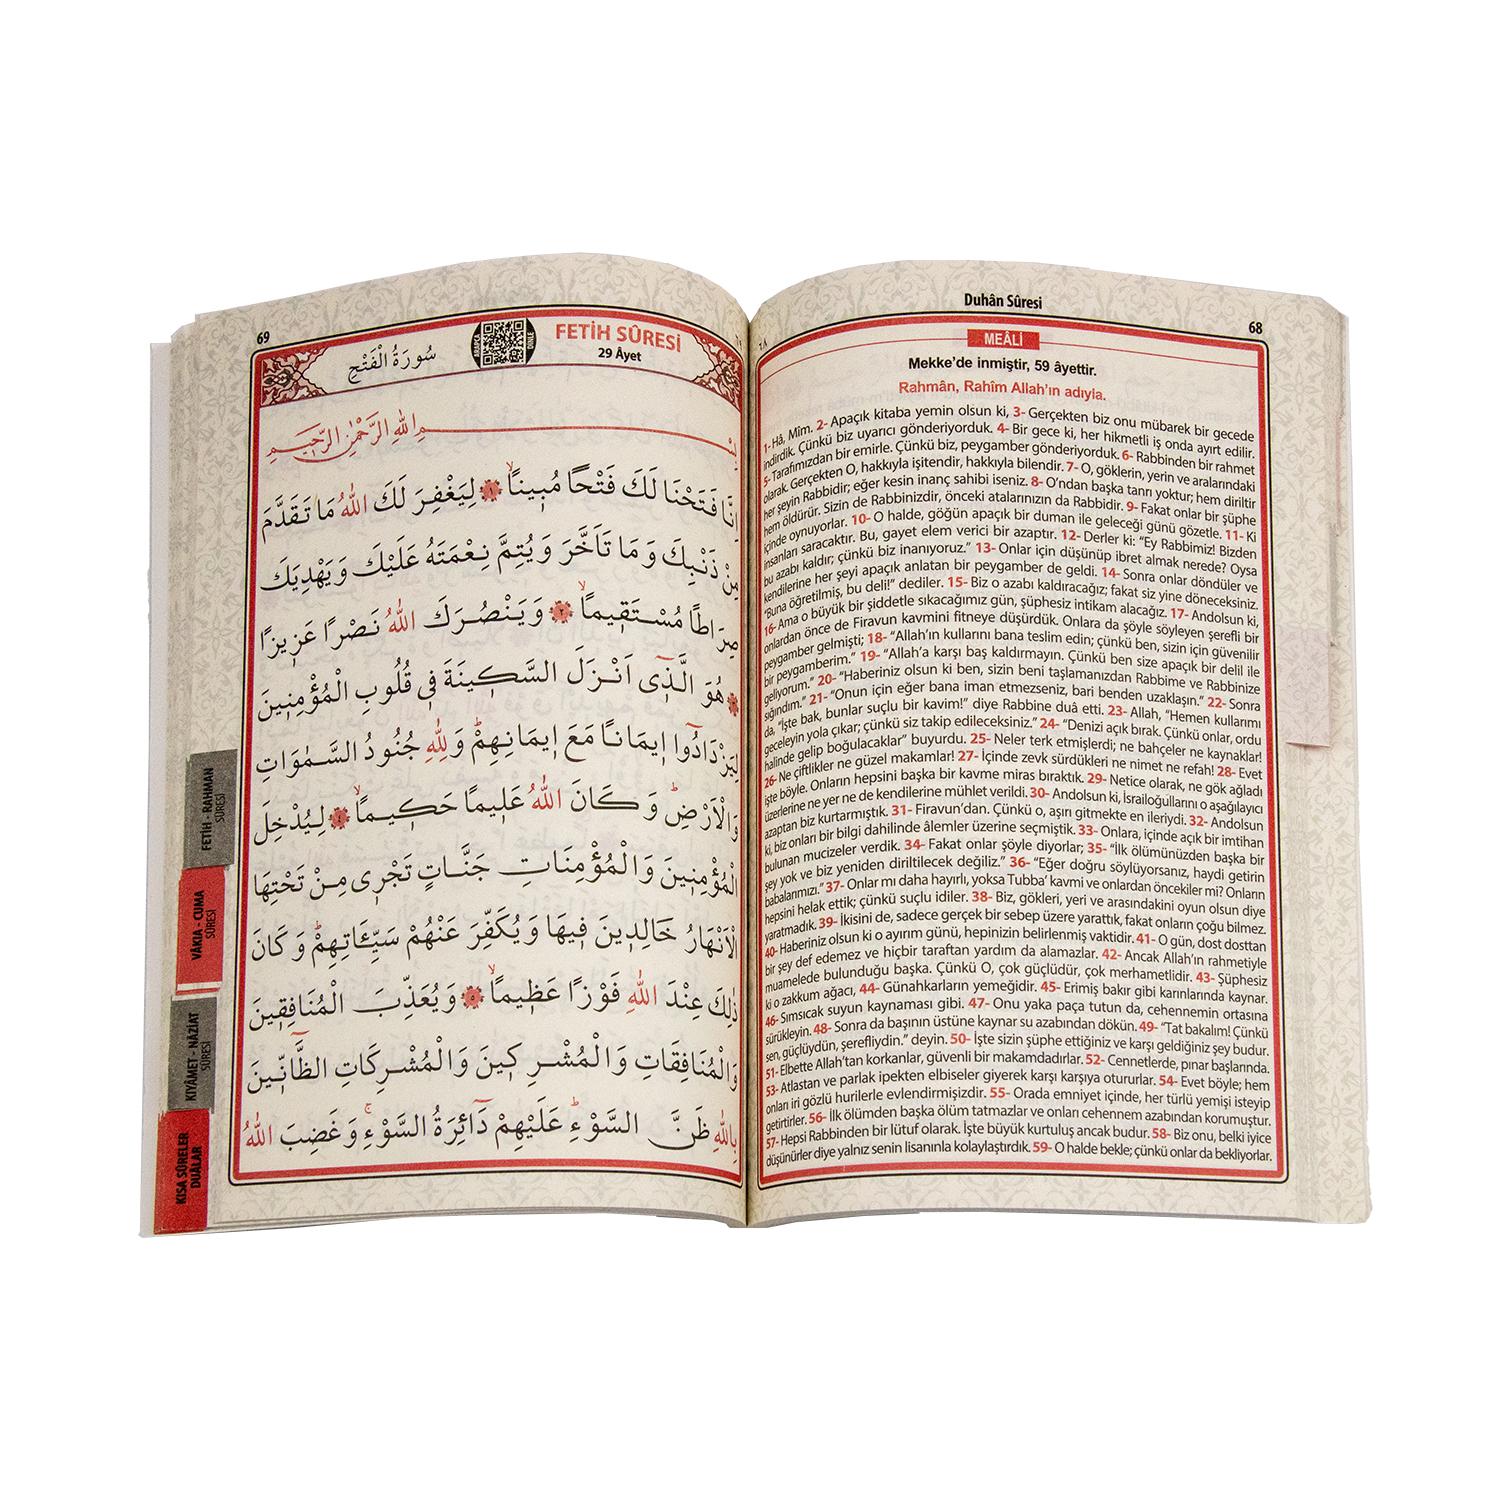 Duhân Sûresi
68
٦٨
MEÂLİ
Mekke’de inmiştir, 59 âyettir.
Rahmân, Rahîm Allah’ın adıyla.
1- Hâ, Mîm. 2- Apaçık kitaba yemin olsun ki, 3- Gerçekten biz onu mübarek bir gecede
indirdik. Çünkü biz uyarıcı gönderiyorduk. 4- Bir gece ki, her hikmetli iş onda ayırt edilir.
5- Tarafımızdan bir emirle. Çünkü biz, peygamber gönderiyorduk. 6- Rabbinden bir rahmet
olarak. Gerçekten O, hakkıyla işitendir, hakkıyla bilendir. 7- O, göklerin, yerin ve aralarındaki
her şeyin Rabbidir; eğer kesin inanç sahibi iseniz. 8- O’ndan başka tanrı yoktur; hem diriltir
hem öldürür. Sizin de Rabbinizdir, önceki atalarınızın da Rabbidir. 9- Fakat onlar bir şüphe
içinde oynuyorlar. 10- O halde, göğün apaçık bir duman ile geleceği günü gözetle. 11- Ki
insanları saracaktır. Bu, gayet elem verici bir azaptır. 12- Derler ki: “Ey Rabbimiz! Bizden
bu azabı kaldır; çünkü biz inanıyoruz.” 13- Onlar için düşünüp ibret almak nerede? Oysa
kendilerine her şeyi apaçık anlatan bir peygamber de geldi. 14- Sonra onlar döndüler ve
“Buna öğretilmiş, bu deli!” dediler. 15- Biz o azabı kaldıracağız; fakat siz yine döneceksiniz.
16- Ama o büyük bir şiddetle sıkacağımız gün, şüphesiz intikam alacağız. 17- Andolsun ki,
onlardan önce de Firavun kavmini fitneye düşürdük. Onlara da şöyle söyleyen şerefli bir
peygamber gelmişti; 18- “Allah’ın kullarını bana teslim edin; çünkü ben, sizin için güvenilir
bir peygamberim.” 19- “Allah’a karşı baş kaldırmayın. Çünkü ben size apaçık bir delil ile
geliyorum.” 20- “Haberiniz olsun ki ben, sizin beni taşlamanızdan Rabbime ve Rabbinize
sığındım.” 21- “Onun için eğer bana iman etmezseniz, bari benden uzaklaşın.” 22- Sonra
da, “İşte bak, bunlar suçlu bir kavim!” diye Rabbine duâ etti. 23- Allah, “Hemen kullarımı
geceleyin yola çıkar; çünkü siz takip edileceksiniz.” 24- “Denizi açık bırak. Çünkü onlar, ordu
halinde gelip boğulacaklar” buyurdu. 25- Neler terk etmişlerdi; ne bahçeler ne kaynaklar!
26- Ne çiftlikler ne güzel makamlar! 27- İçinde zevk sürdükleri ne nimet ne refah! 28- Evet
işte böyle. Onların hepsini başka bir kavme miras bıraktık. 29- Netice olarak, ne gök ağladı
üzerlerine ne yer ne de kendilerine mühlet verildi. 30- Andolsun ki, İsrailoğullarını o aşağılayıcı
azaptan biz kurtarmıştık. 31- Firavun’dan. Çünkü o, aşırı gitmekte en ileriydi. 32- Andolsun
ki, biz onları bir bilgi dahilinde âlemler üzerine seçmiştik. 33- Onlara, içinde açık bir imtihan
bulunan mucizeler verdik. 34- Fakat onlar şöyle diyorlar; 35- “İlk ölümünüzden başka bir
şey yok ve biz yeniden diriltilecek değiliz.” 36- “Eğer doğru söylüyorsanız, haydi getirin
babalarımızı.” 37- Onlar mı daha hayırlı, yoksa Tubba’ kavmi ve onlardan öncekiler mi? Onların
hepsini helak ettik; çünkü suçlu idiler. 38- Biz, gökleri, yeri ve arasındakini oyun olsun diye
yaratmadık. 39- İkisini de, sadece gerçek bir sebep üzere yarattık, fakat onların çoğu bilmez.
40- Haberiniz olsun ki o ayırım günü, hepinizin belirlenmiş vaktidir. 41- O gün, dost dosttan
bir şey def edemez ve hiçbir taraftan yardım da alamazlar. 42- Ancak Allah’ın rahmetiyle
muamelede bulunduğu başka. Çünkü O, çok güçlüdür, çok merhametlidir. 43- Şüphesiz
ki o zakkum ağacı, 44- Günahkarların yemeğidir. 45- Erimiş bakır gibi karınlarında kaynar.
46- Sımsıcak suyun kaynaması gibi. 47- Onu yaka paça tutun da, cehennemin ortasına
sürükleyin. 48- Sonra da başının üstüne kaynar su azabından dökün. 49- “Tat bakalım! Çünkü
sen, güçlüydün, şerefliydin.” deyin. 50- İşte sizin şüphe ettiğiniz ve karşı geldiğiniz şey budur.
51- Elbette Allah’tan korkanlar, güvenli bir makamdadırlar. 52- Cennetlerde, pınar başlarında.
53- Atlastan ve parlak ipekten elbiseler giyerek karşı karşıya otururlar. 54- Evet böyle; hem
onları iri gözlü hurilerle evlendirmişizdir. 55- Orada emniyet içinde, her türlü yemişi isteyip
getirtirler. 56- İlk ölümden başka ölüm tatmazlar ve onları cehennem azabından korumuştur.
57- Hepsi Rabbinden bir lütuf olarak. İşte büyük kurtuluş ancak budur. 58- Biz onu, belki iyice
düşünürler diye yalnız senin lisanınla kolaylaştırdık. 59- O halde bekle; çünkü onlar da bekliyorlar.
69
FETİH SÛRESİ
29 Âyet
سُورَةُ الْفَتْحِ
بِسْمِ اللّٰهِ الرَّحْمٰنِ الرَّحِيمِ
اِنَّا فَتَحْنَا لَكَ فَتْحًا مُبِينًاۙ ١ لِيَغْفِرَ لَكَ اللّٰهُ مَا تَقَدَّمَ
مِنْ ذَنْبِكَ وَمَا تَاَخَّرَ وَيُتِمَّ نِعْمَتَهُ عَلَيْكَ وَيَهْدِيَكَ
صِرَاطًا مُسْتَقِيمًاۙ ٢ وَيَنْصُرَكَ اللّٰهُ نَصْرًا عَزِيزًا
٣ هُوَ الَّذِٓى اَنْزَلَ السَّكِينَةَ فِى قُلُوبِ الْمُؤْمِنِينَ
لِيَزْدَادُٓوا اِيمَانًا مَعَ اِيمَانِهِمْۜ وَلِلّٰهِ جُنُودُ السَّمٰوَاتِ
وَالْاَرْضِۜ وَكَانَ اللّٰهُ عَلِيمًا حَكِيمًاۙ ٤ لِيُدْخِلَ
الْمُؤْمِنِينَ وَالْمُؤْمِنَاتِ جَنَّاتٍ تَجْرِى مِنْ تَحْتِهَا
الْاَنْهَارُ خَالِدِينَ فِيهَا وَيُكَفِّرَ عَنْهُمْ سَيِّـَٔاتِهِمْۜ وَكَانَ
ذٰلِكَ عِنْدَ اللّٰهِ فَوْزًا عَظِيمًاۙ ٥ وَيُعَذِّبَ الْمُنَافِقِينَ
وَالْمُنَافِقَاتِ وَالْمُشْرِكِينَ وَالْمُشْرِكَاتِ الظَّٓانِّينَ
بِاللّٰهِ ظَنَّ السَّوْءِۜ عَلَيْهِمْ دَٓائِرَةُ السَّوْءِۚ وَغَضِبَ اللّٰهُ
FETİH - RAHMAN
SÛRESİ
VÂKIA - CUMA
SÛRESİ
KIYÂMET - NÂZİAT
SÛRESİ
KISA SÛRELER
DUALAR